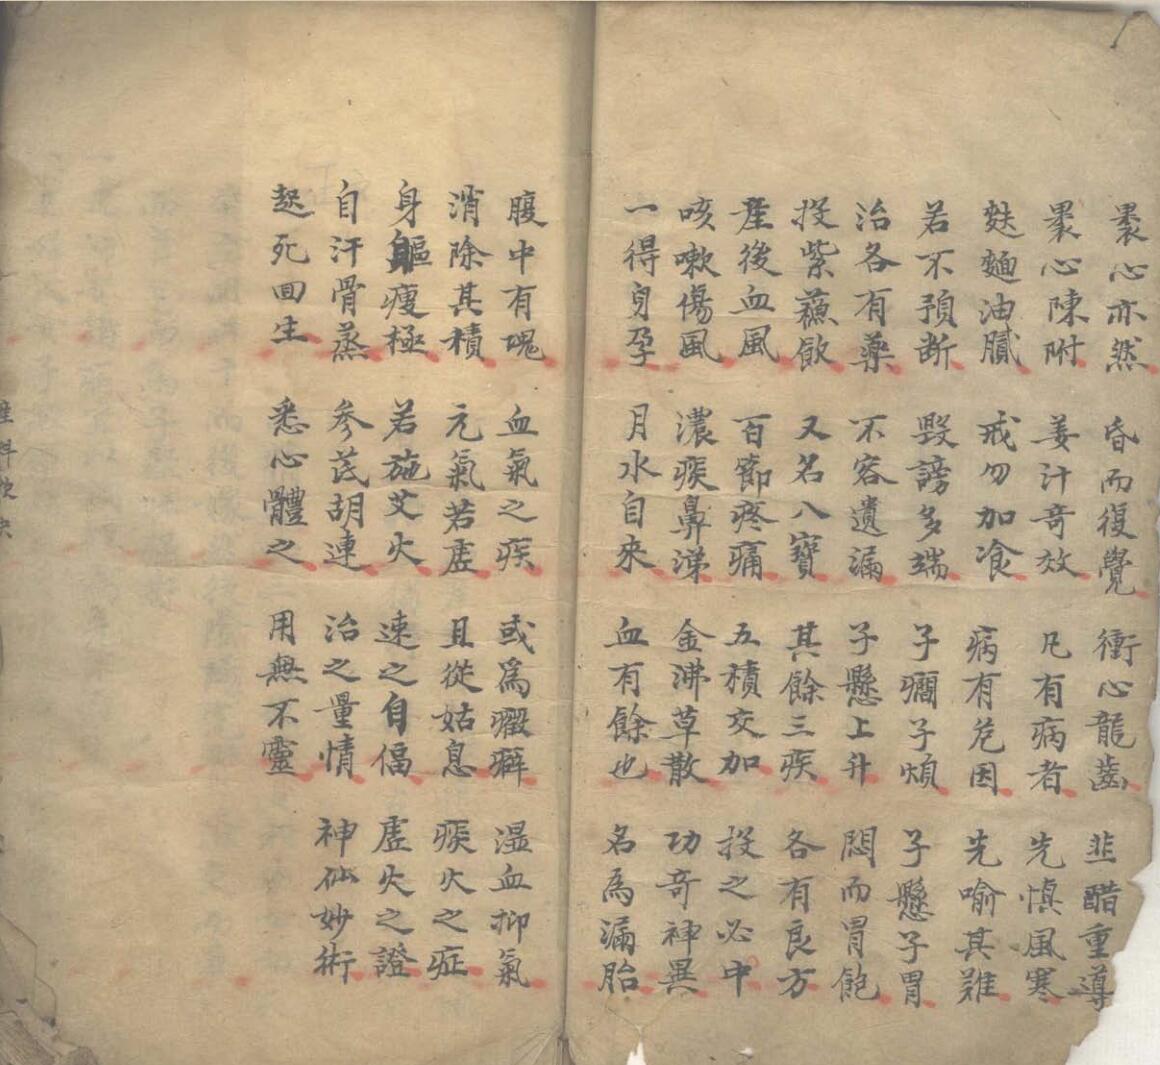 暴心亦然 昏而復覺 衝心龍齒 韭醋重導
暴心陳附 姜汁奇效 凡有病者 先慎風寒
麩麵油膩 戒勿加飡 病有危因 先喻其難
若不預斷 毀謗多端 子癎子煩 子懸子胃
治各有藥 不容遺漏 子懸上升 悶而胃飽
投紫蘓飲 又名八寶 其餘三疾 各有良方
產後血風 百節疼痛 五積交加 投之必中
咳嗽傷風 濃痰鼻涕 金沸草散 功奇神異
一得身孕 月水自來 血有餘也 名為漏胎
腹中有塊 血氣之疾 或為癥癖 濕血抑氣
消除其積 元氣若虛 且從姑息 痰火之症
身軀瘦極 若施艾火 速之自傷 虛火之證
自汗骨蒸 參芪胡連 治之量情 神仙妙術
起死回生 悉心體之 用無不靈
產科歌